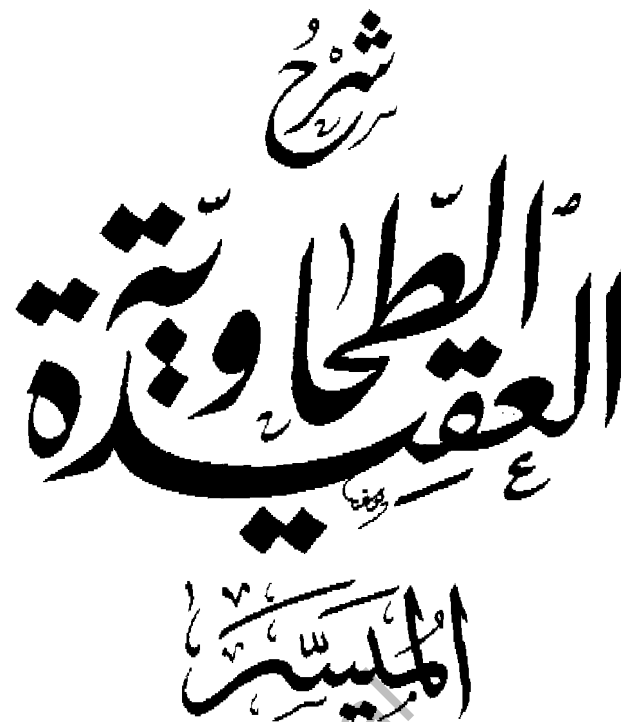 شرح
العقيدة الطحاوية
الميسر